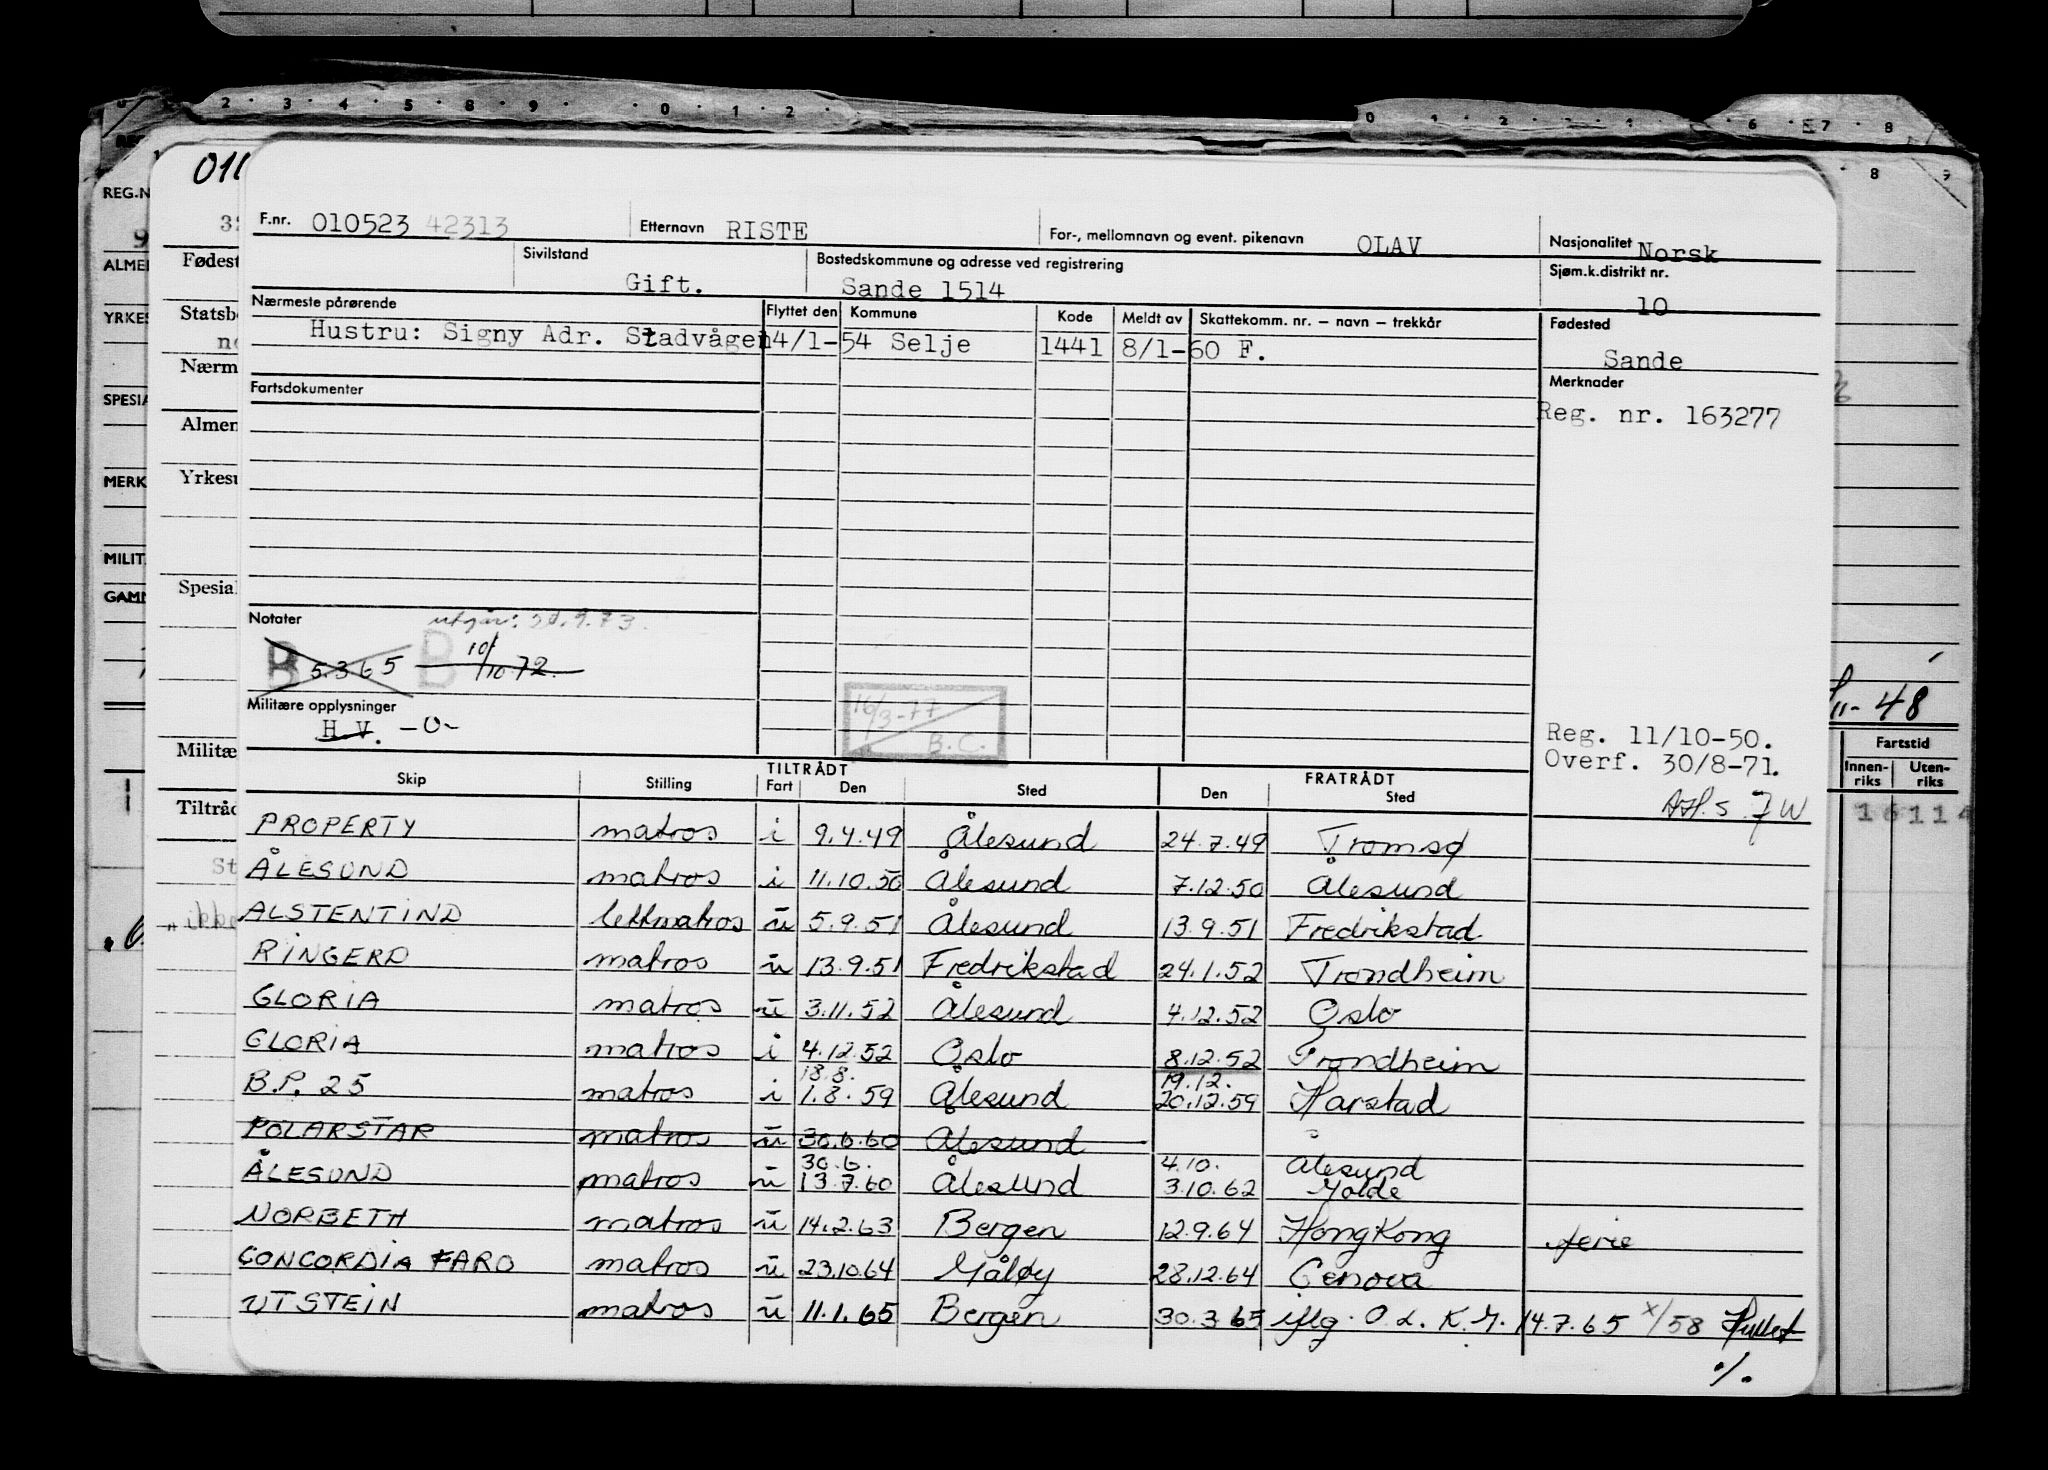 2 · 3 · 4 · 5 · 8 · 9 · · 0 · 1 · 2 ·
0 1 2 6 7 · 8
8 9
REG.N
ALMEN
YRKES
SPESIA
MERK
MILIT
GAMM
011
32
Fødest
Statsb
no
Nærm
Almen
Yrkesu
Spesial
Militæ
Tiltråd
St
„ikke
F.nr. 010523 42313 Etternavn RISTE For-, mellomnavn og event. pikenavn OLAV Nasjonalitet Norsk
Sivilstand Gift. Bostedskommune og adresse ved registrering Sande 1514 Sjøm.k.distrikt nr. 10
Nærmeste pårørende Flyttet den Kommune Kode Meldt av Skattekomm. nr. – navn – trekkår Fødested
Hustru: Signy Adr. Stadvågen 14/1-54 Selje 1441 8/1-60 F. Sande
Fartsdokumenter Merknader
Reg. nr. 163277
Notater utgår: 9.73.
B 5.3 65 B 10/10.72.
Militære opplysninger 16/3-77
H.V. -0- B.C.
Reg. 11/10-50.
Overf. 30/8-71.
11-48
Fartstid
Innen-riks Uten-riks
16114
TILTRÅDT FRATRÅDT
Skip Stilling Fart Den Sted Den Sted
PROPERTY matros i 9.4.49 Ålesund 24.7.49 Tromsø
ÅLESUND matros i 11.10.50 Ålesund 7.12.50 Ålesund
ALSTENTIND lettmatros u 5.9.51 Ålesund 13.9.51 Fredrikstad
RINGERD matros u 13.9.51 Fredrikstad 24.1.52 Trondheim
GLORIA matros u 3.11.52 Ålesund 4.12.52 Oslo
GLORIA matros i 4.12.52 Oslo 8.12.52 Trondheim
18.8. 19.12.
B.P. 25 matros i 1.8.59 Ålesund 20.12.59 Harstad
POLARSTAR matros u 30.6.60 Ålesund
30.6. 4.10. Ålesund
ÅLESUND matros u 13.7.60 Ålesund 3.10.62 Molde
NORBETH matros u 14.2.63 Bergen 12.9.64 HongKong ferie
CONCORDIA FARO matros u 23.10.64 Måløy 28.12.64 Genova
UTSTEIN matros u 11.1.65 Bergen 30.3.65 iflg. O.L.K.M. 14.7.65 x/58 Hullet
./.